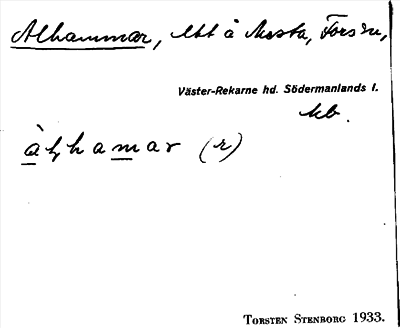 Alhammar, ltt å Mesta, Fors sn,
Väster-Rekarne hd. Södermanlands l.
hamar (r)
Torsten Stenborg 1933.